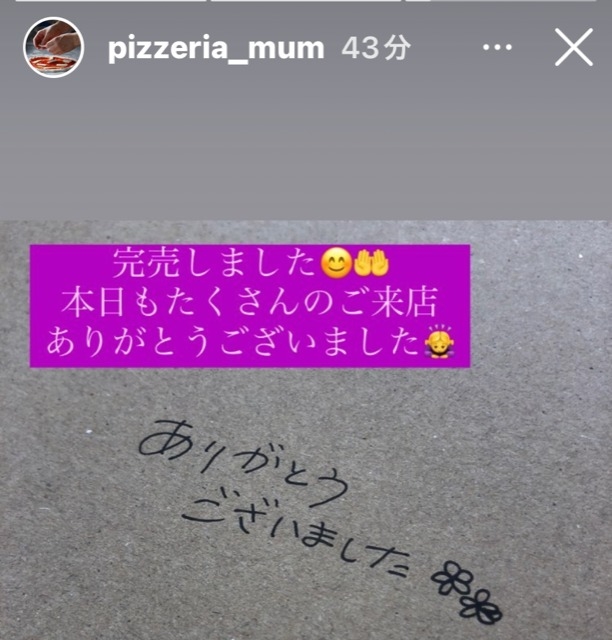 pizzeria_mum 43分
完売しました😊🤲
本日もたくさんのご来店
ありがとうございました🙇
ありがとう
ございました